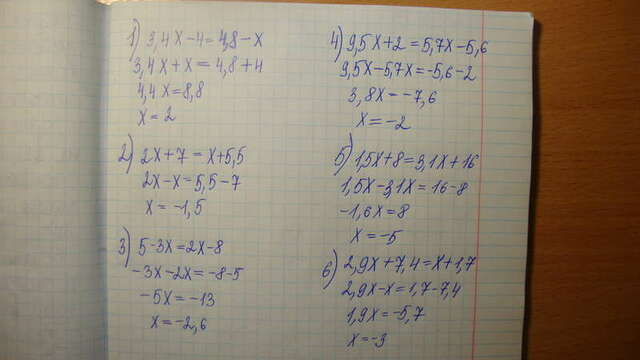 1) 3,4x-4=4,8-x
3,4x+x=4,8+4
4,4x=8,8
x=2
2) 2x+7=x+5,5
2x-x=5,5-7
x=-1,5
3) 5-3x=2x-8
-3x-2x=-8-5
-5x=-13
x=-2,6
4) 9,5x+2=5,7x-5,6
9,5x-5,7x=-5,6-2
3,8x=-7,6
x=-2
5) 1,5x+8=3,1x+16
1,5x-3,1x=16-8
-1,6x=8
x=-5
6) 2,9x+7,4=x+1,7
2,9x-x=1,7-7,4
1,9x=-5,7
x=-3